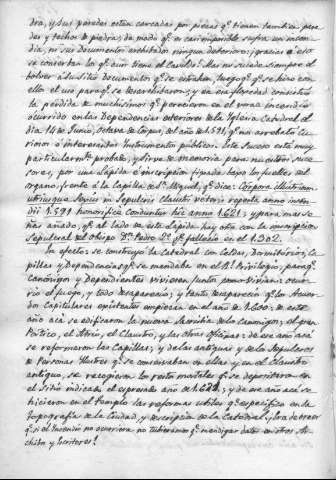 dra, y sus paredes estàn cercadas por piezas qᵉ tienen tambien pare-
des y techos de piedra; de modo qᵉ es casi imposible sufra un incen-
dio, ni sus documentos archibados ningun deterioro: gracias a esto
se conserban los qᵉ aùn tiene el Cavildo. Mas no sucede siempre el
bolver à su sitio documentos qᵉ se estraben, luego qᵉ se hizo con
ellos el uso paraqᵉ se
la pèrdida de muchisimos qᵉ perecieron en el voraz incendio
ocurrido en las Dependencias exteriores de la Yglesia Catedral el
dia 14 de Junio, octava de Corpus, del año de 1591, qᵉ nos arrebatò cu-
riosos è interesantes Instrumentos publicos. Este suceso està muy
particularmᵗᵉ probado, y sirve de memoria para nuestros suce-
sores, por una làpida è inscripcion fijada bajo los fuelles del
organo, frente à la Capilla de Sⁿ Miguel, qᵉ dice: Corpora illustrium
utriusque sexus in sepulcris Claustri veteris reperta anno incen-
dii 1591 honorifice conduntur hic anno 1621; y para mas se-
ñas añado, qᵉ al lado de esta làpida hay otra con la inscripcion
sepulcral del obispo Dⁿ Pedro 2º qᵉ falleciò en el 1302.
En efecto, se construyò la catedral con Celdas, dormitorios, Ca-
pillas y Dependencias qᵉ se mandaba en el Rˡ Privilegio, paraqᵉ
Canonigos y Dependientes viviesen juntos como vivian: ocur-
riò el fuego, y todo desapareciò; y tanto desapareciò qᵉ los Acuer-
dos Capitulares existentes empiezan en el año de 1.600: de este
año acà se edificaron la nueva Sacristia de los Canonigos, el gran
Portico, el Atrio, el Claustro, y las otras oficinas: de ese año acà
se reformaron las Capillas, y de las antiguas y de los sepulcros
de Personas Ilustres qᵉ se conserbaban en ellas y en el Claustro
antiguo, se recogieron los restos mortales qᵉ se depositaron en
el sitio indicado el espresado año de 1.621; y de ese año acà se
hicieron en el templo las reformas utiles qᵉ especifico en la
Topografia de la Ciudad, y descripcion de la Catedral, y
qᵉ si el Incendio no ocurriera no tubieramos qᵉ mendigar datos en otros Ar-
chibos y Escritores.